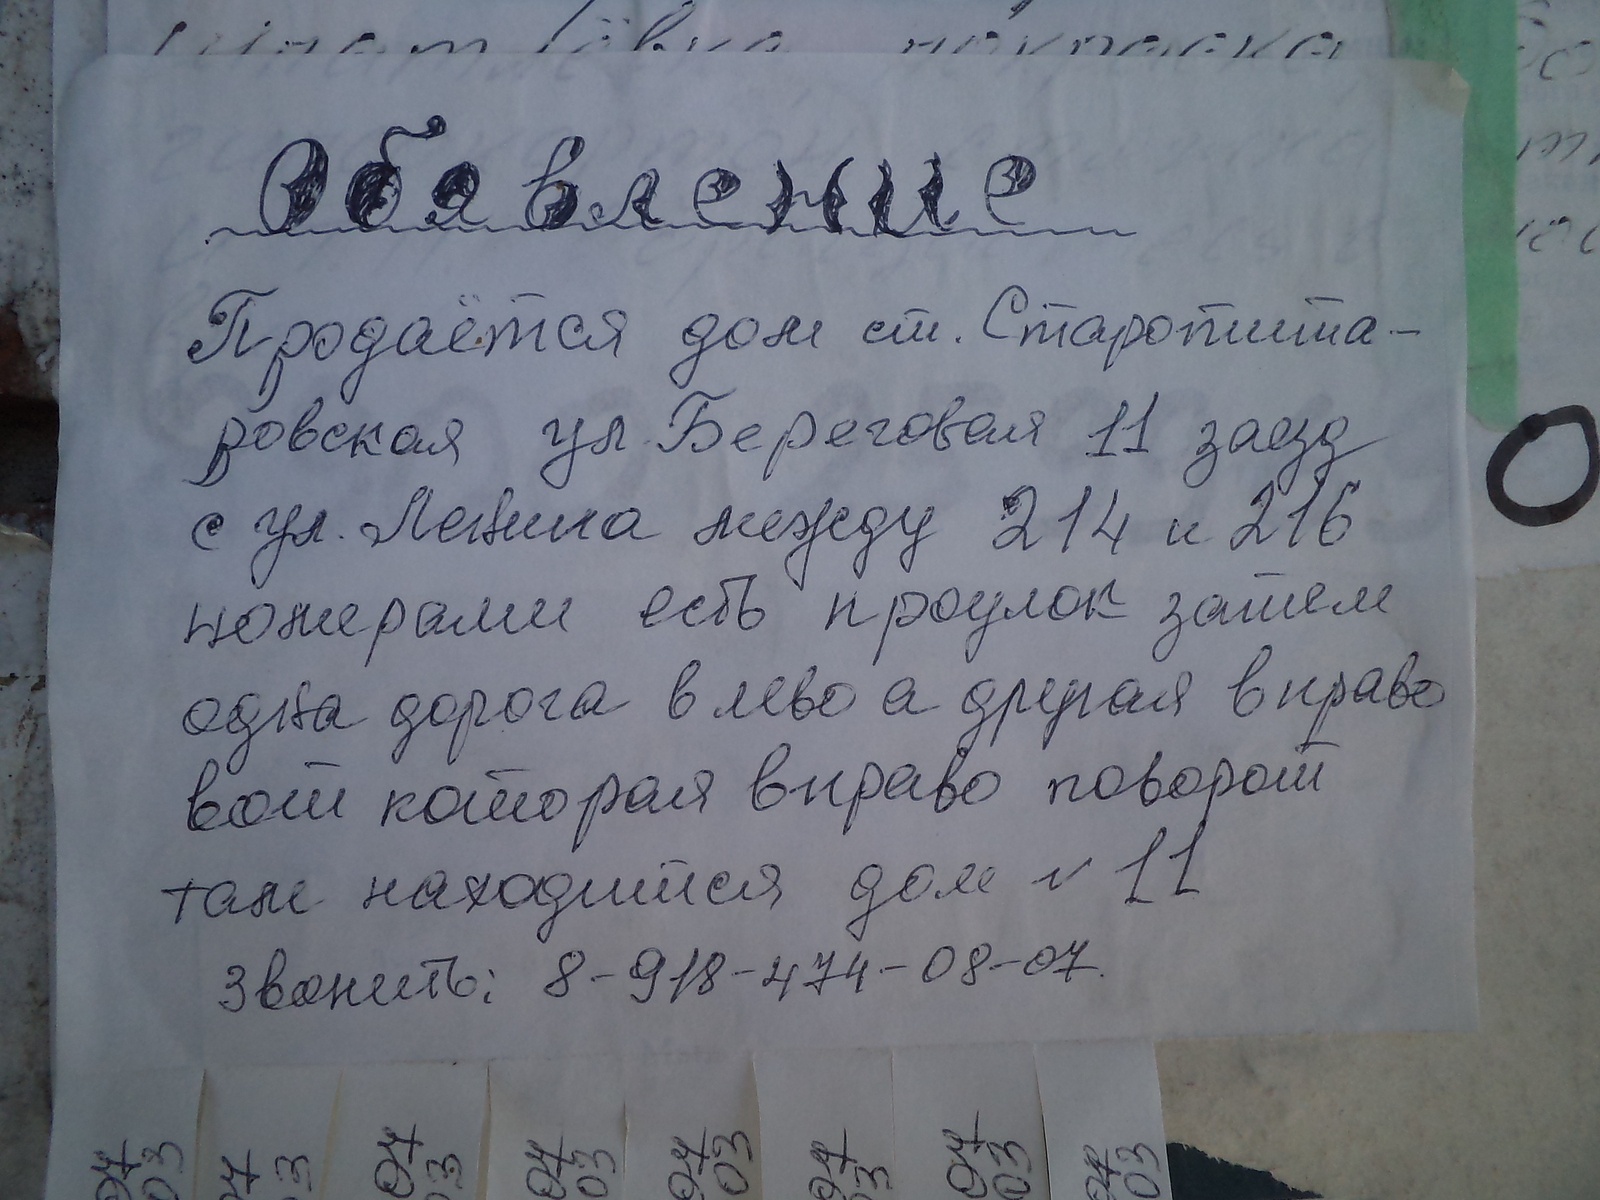 Обявление
Продаётся дом ст. Старотита-
ровская ул. Береговая 11 заезд
с ул. Ленина между 214 и 216
номерами есть проулок затем
одна дорога влево а другая вправо
вот которая вправо поворот
там находится дом № 11
Звонить: 8-918-474-08-07